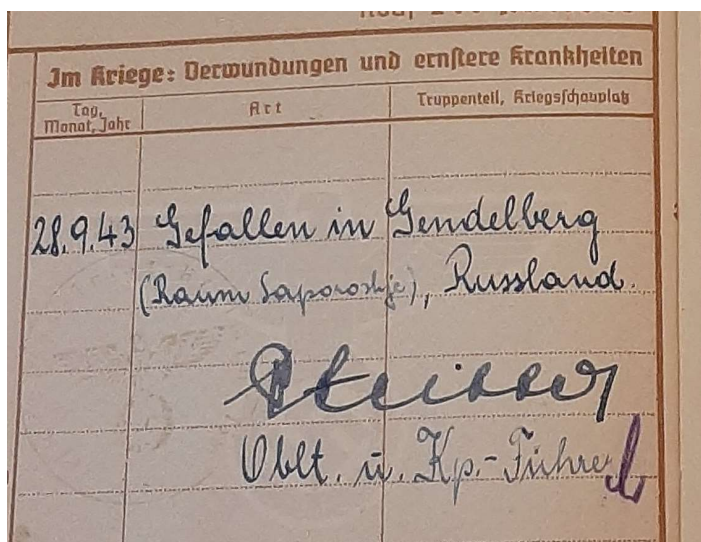 Im Kriege: Verwundungen und ernstere Krankheiten
Tag, Monat, Jahr
Art
Truppenteil, Kriegsschauplatz
28.9.43 Gefallen in Gendelberg
(Raum Saporoshje), Russland.
Oblt. u. Kp.-Führer